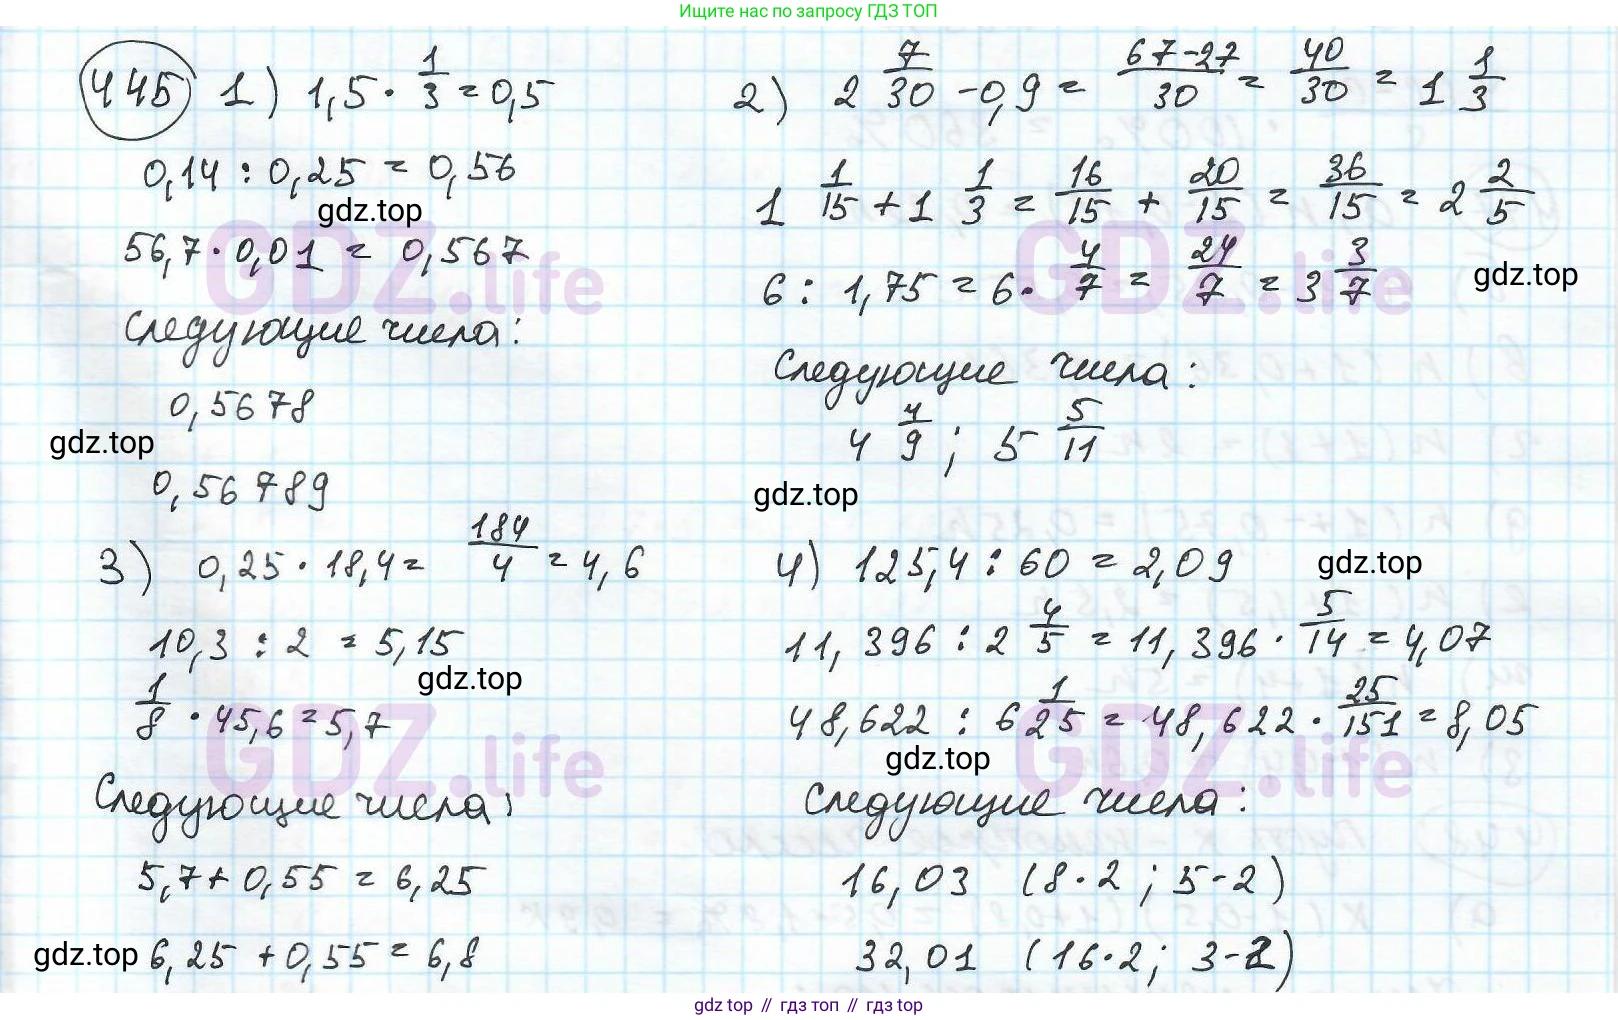 Ищите нас по запросу ГДЗ ТОП
445 1) 1,5 · 1/3 = 0,5
0,14 : 0,25 = 0,56
gdz.top
56,7 · 0,01 = 0,567
GDZ.life
Следующие числа:
0,5678
gdz.top
0,56789
2) 2 7/30 - 0,9 = 67-27/30 = 40/30 = 1 1/3
1 1/15 + 1 1/3 = 16/15 + 20/15 = 36/15 = 2 2/5
6 : 1,75 = 6 · 4/7 = 24/7 = 3 3/7
gdz.top
GDZ.life
Следующие числа:
4 4/9 ; 5 5/11
gdz.top
3) 0,25 · 18,4 = 184/4 = 4,6
10,3 : 2 = 5,15
gdz.top
1/8 · 45,6 = 5,7
GDZ.life
Следующие числа:
5,7 + 0,55 = 6,25
gdz.top
6,25 + 0,55 = 6,8
4) 125,4 : 60 = 2,09
gdz.top
11,396 : 2 4/5 = 11,396 · 5/14 = 4,07
48,622 : 6 1/25 = 48,622 · 25/151 = 8,05
gdz.top
GDZ.life
Следующие числа:
16,03 (8·2 ; 5-2)
32,01 (16·2 ; 3-2)
gdz top // гдз топ // гдз top